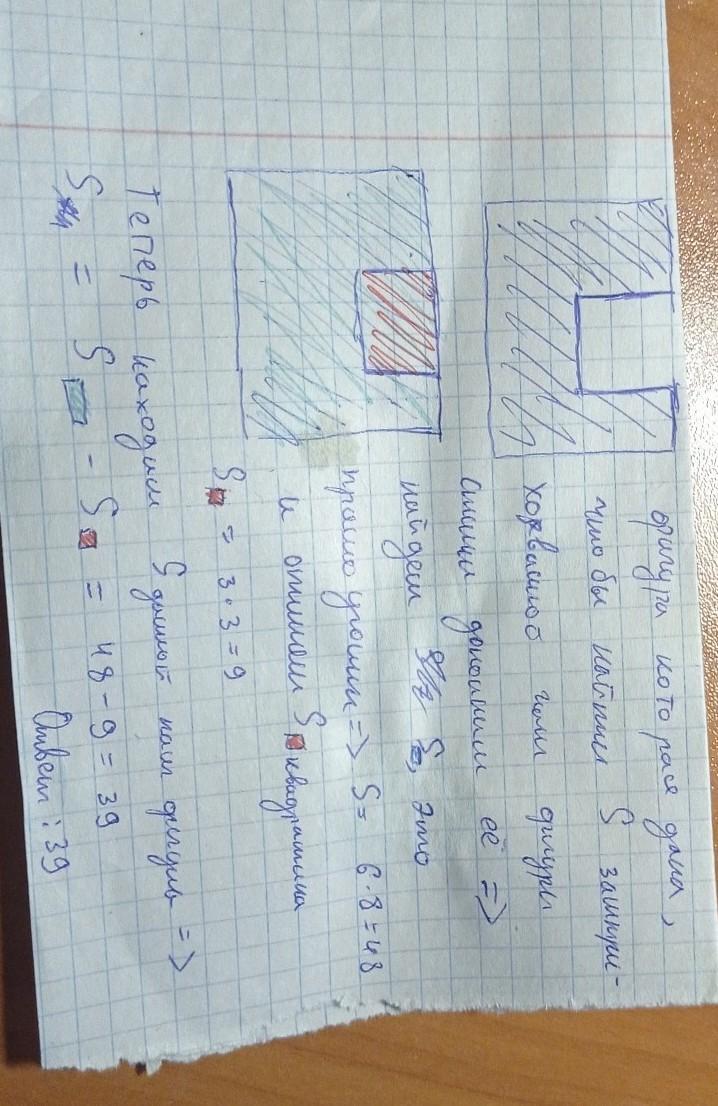 фигура которая дана,
чтобы найти S заштри-
хованной фигуры
дополним её =>
найдем S, это
прямоугольник => S = 6·8=48
и отнимем S квадратика
S = 3·3=9
Теперь находим S данной нам фигуры =>
S = S - S = 48-9=39
Ответ: 39